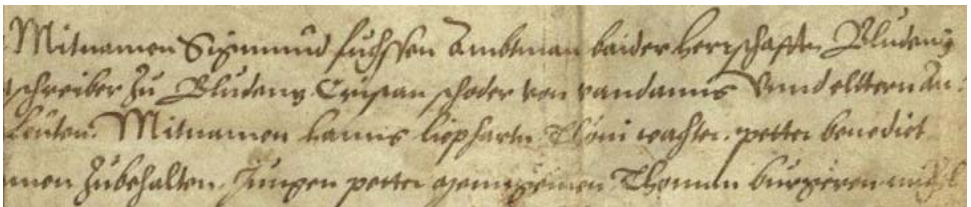 Mitnamen Sigmund fuchssen Ambtman baider herrschafften Bludentz
schreiber zu Bludentz Cristan schoder von vandanns Vnnd elltern
leuten. Mitnamen hanns liephartn Thöni wachter. petter benedict
men zubehalten. Jungen petter Thoman burgeren